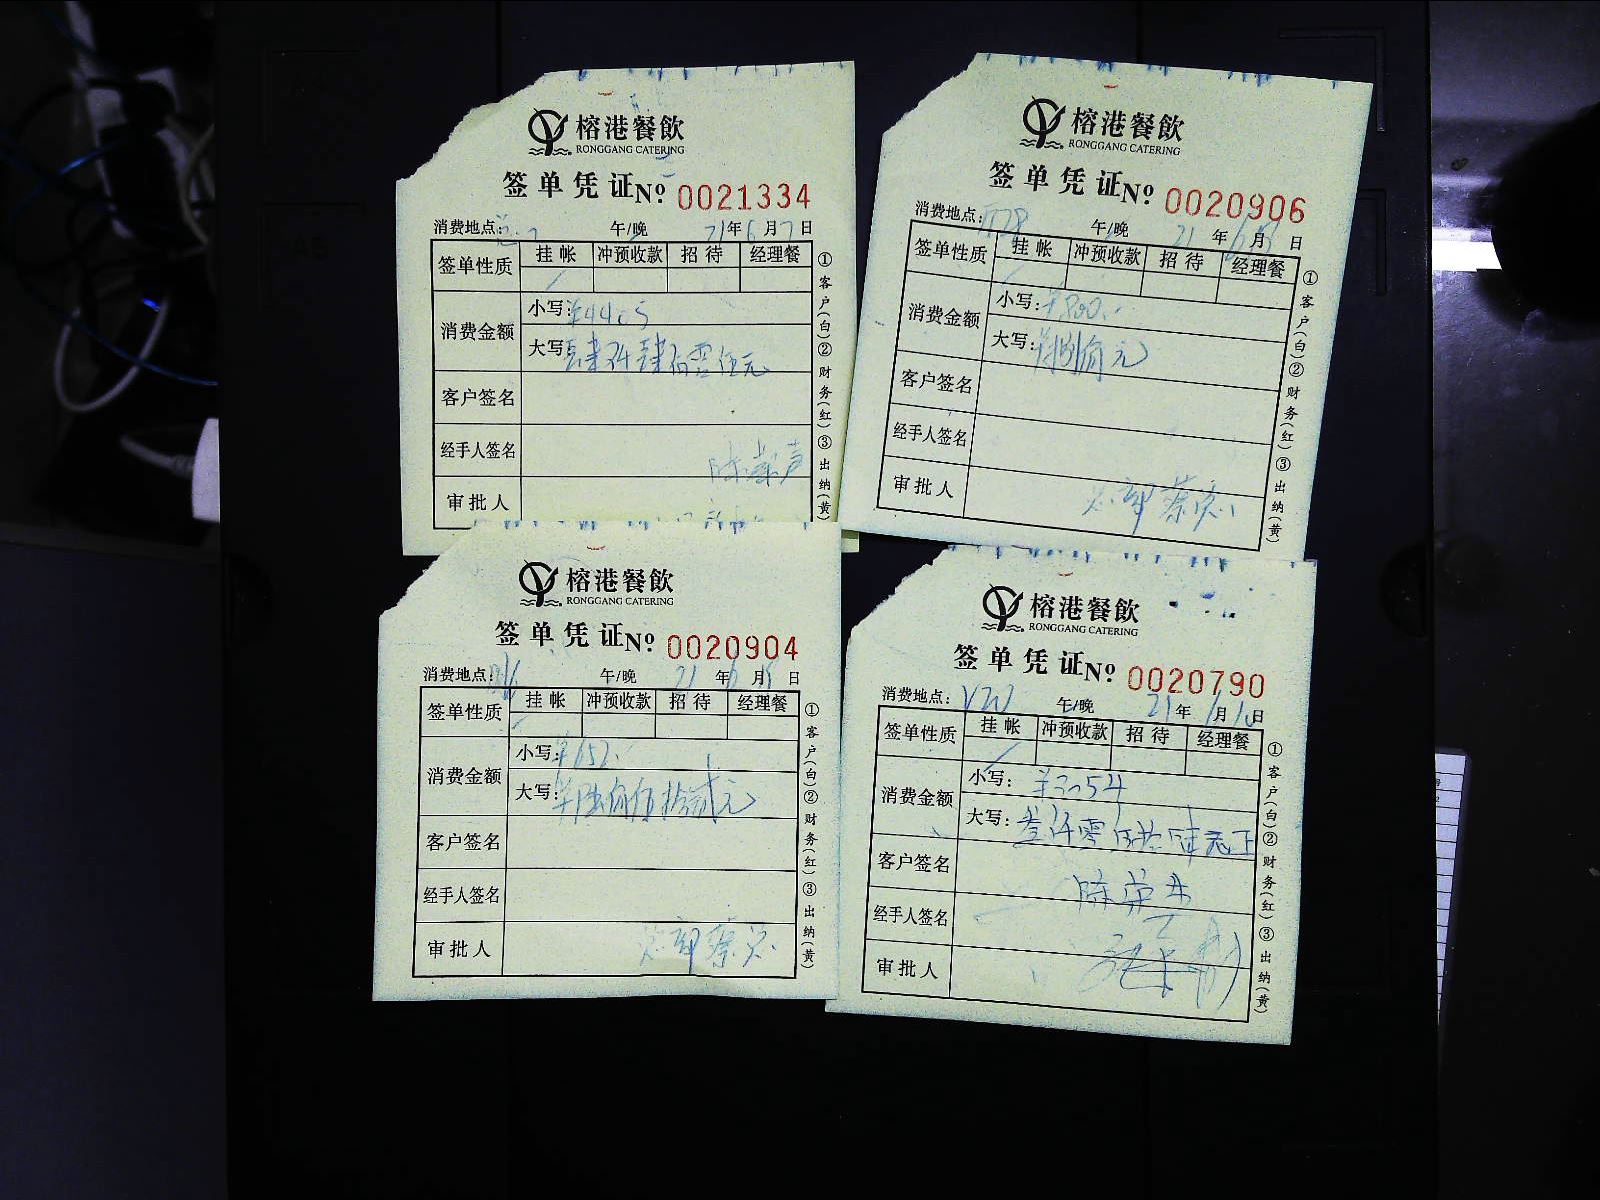 榕港餐飲
RONGGANG CATERING
签单凭证 Nº 0021334
消费地点: 午/晚 21年6月7日
签单性质 挂帐 冲预收款 招待 经理餐
消费金额 小写: ¥4405
大写: 肆仟肆佰零伍元
客户签名
经手人签名
审批人
①客户(白)②财务(红)③出纳(黄)
榕港餐飲
RONGGANG CATERING
签单凭证 Nº 0020906
消费地点: 午/晚 21年6月 日
签单性质 挂帐 冲预收款 招待 经理餐
消费金额 小写: ¥800.
大写: 捌佰元
客户签名
经手人签名
审批人 总部 蔡总
①客户(白)②财务(红)③出纳(黄)
榕港餐飲
RONGGANG CATERING
签单凭证 Nº 0020904
消费地点: 午/晚 21年 月 日
签单性质 挂帐 冲预收款 招待 经理餐
消费金额 小写: ¥652.
大写: 陆佰伍拾贰元
客户签名
经手人签名
审批人 总部 蔡总
①客户(白)②财务(红)③出纳(黄)
榕港餐飲
RONGGANG CATERING
签单凭证 Nº 0020790
消费地点: 午/晚 21年 月 日
签单性质 挂帐 冲预收款 招待 经理餐
消费金额 小写: ¥3054
大写: 叁仟零伍拾肆元正
客户签名
经手人签名
审批人
①客户(白)②财务(红)③出纳(黄)